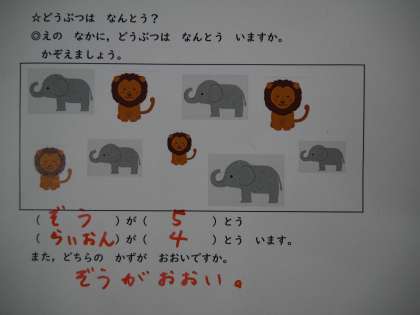 ☆どうぶつは なんとう?
◎えの なかに，どうぶつは なんとう いますか。
かぞえましょう。
( ぞう )が( 5 )とう
( らいおん )が( 4 )とう います。
また，どちらの かずが おおいですか。
ぞうがおおい。